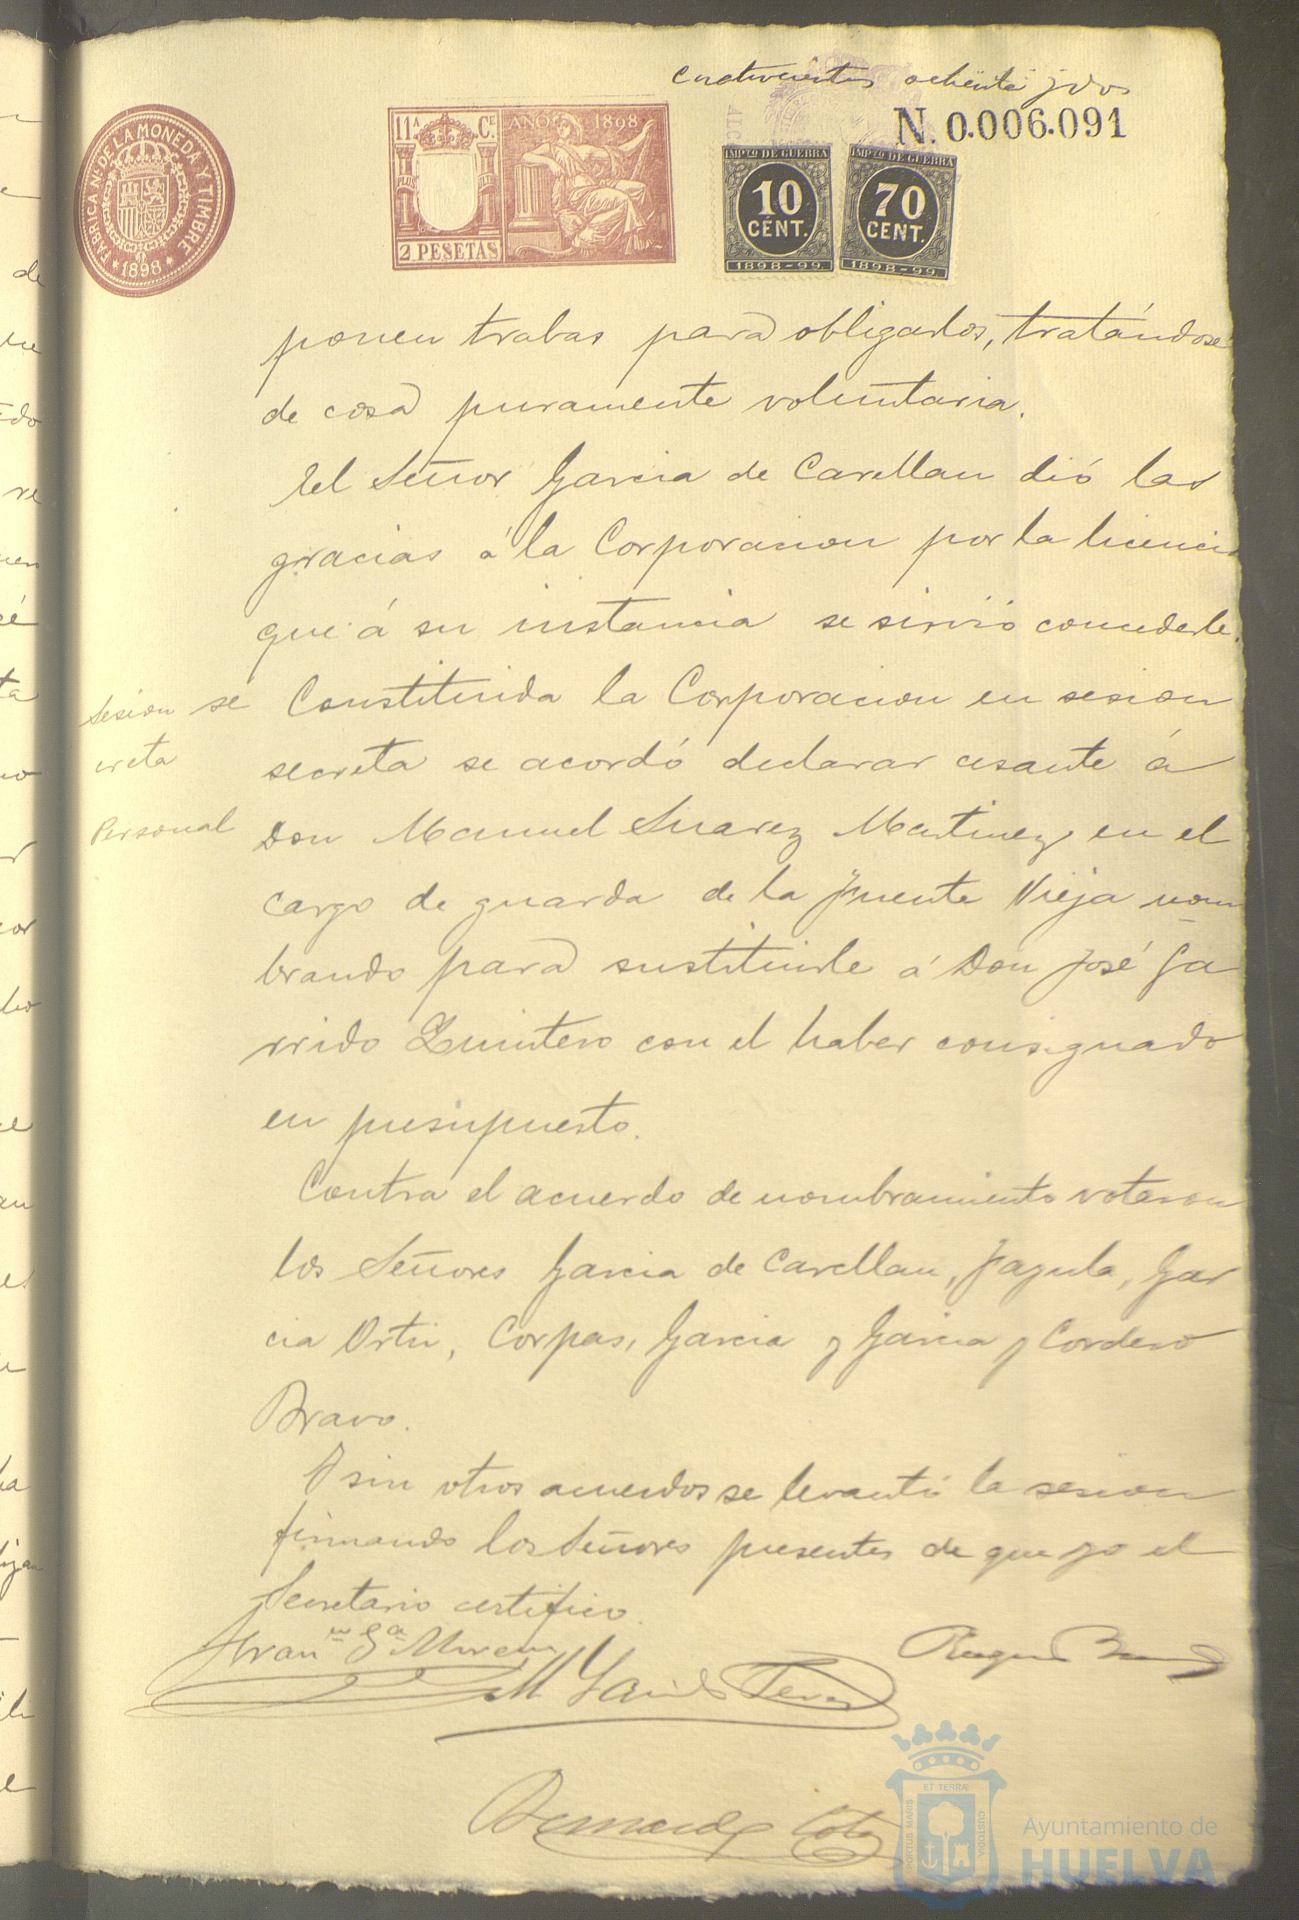 cuatrocientos ochenta y dos
N. 0.006.091
FABRICA Nal. DE LA MONEDA Y TIMBRE
* 1898 *
11ª Ce
AÑO DE 1898
2 PESETAS
IMPto DE GUERRA
10
CENT.
1898-99
IMPto DE GUERRA
70
CENT.
1898-99.
ponen trabas para obligarlos, tratándose
de cosa puramente voluntaria.
El Señor Garcia de Carellan dió las
gracias á la Corporacion por la licencia
que á su instancia se sirvió concederle.
Sesion se
creta
Constituida la Corporacion en sesion
secreta se acordó declarar cesante á
Personal
Don Manuel Suarez Martinez en el
cargo de guarda de la Fuente Vieja nom
brando para sustituirle á Don José Ga
rrido Quintero con el haber consignado
en presupuesto.
Contra el acuerdo de nombramiento votaron
los Señores Garcia de Carellan, Gar
cia Ortiz, Corpas, Garcia y Garcia y Cordero
Bravo.
Y sin otros acuerdos se levantó la sesion
firmando los Señores presentes de que yo el
Secretario certifico.
PORTUS MARIS ET TERRÆ CUSTODIA
Ayuntamiento de
HUELVA